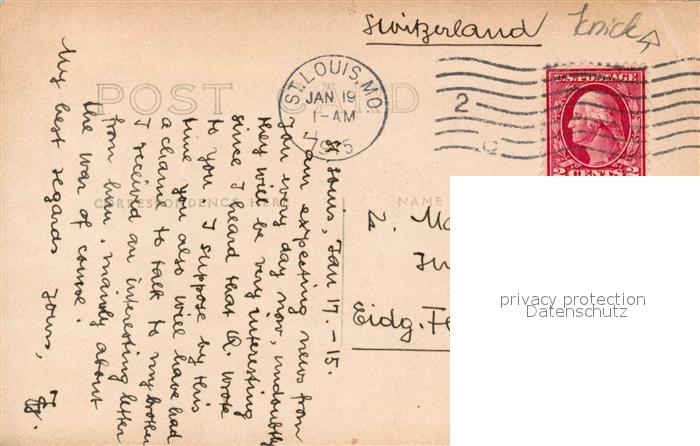 Switzerland
Knick
POST CARD
ST. LOUIS, MO.
JAN 19
1-AM
1915
2
U.S. POSTAGE
2 CENTS 2
CORRESPONDENCE HERE
NAME
St Louis, Jan 17. - 15.
I am expecting news from
you every day now, undoubtly
they will be very interesting
since I heard that R. wrote
to you. I suppose by this
time you also will have had
a chance to talk to my brother
I received an interesting letter
from him, mainly about
the war of course.
My best regards yours,
Eidg.
privacy protection
Datenschutz